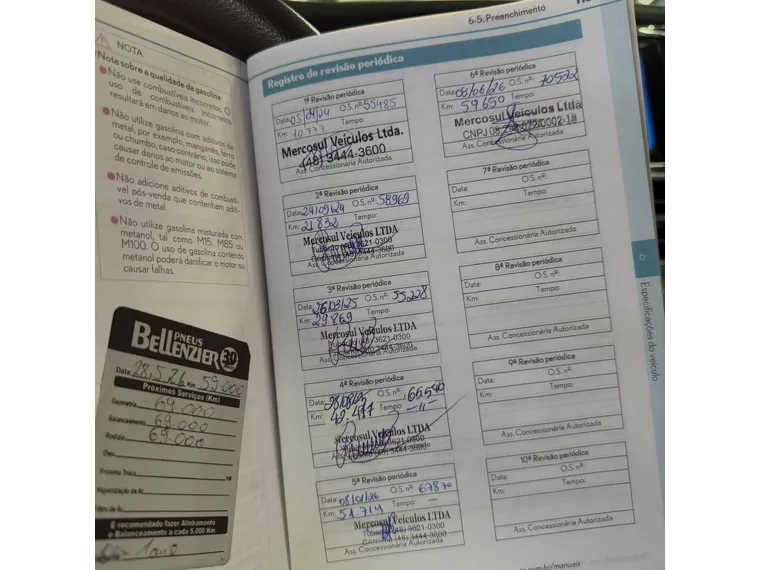 NOTA
Nota sobre a qualidade da gasolina
Não use combustíveis incorretos. O
uso de combustíveis incorretos
resultará em danos ao motor.
Não utilize gasolina com aditivos de
metal, por exemplo, manganês, ferro
ou chumbo, caso contrário, isso pode
causar danos ao motor ou ao sistema
de controle de emissões.
Não adicione aditivos de combustí-
vel pós-venda que contenham aditi-
vos de metal.
Não utilize gasolina misturada com
metanol, tal como M15, M85 ou
M100. O uso de gasolina contendo
metanol poderá danificar o motor ou
causar falhas.
PNEUS
BELLENZIER 30
Data: 28,5,26 Km 59.000
Próximos Serviços (Km)
Geometria 69.000
Balanceamento 69.000
Rodízio 69.000
Óleo
Próxima Troca
Higienização de Ar
Filtro de Ar
É recomendado fazer Alinhamento
e Balanceamento a cada 5.000 Km
6-5. Preenchimento
Registro de revisão periódica
1ª Revisão periódica
Data: 05/04/24 O.S. nº: 55485
Km: 10.777 Tempo:
Mercosul Veículos Ltda.
(48) 3444-3600
Ass. Concessionária Autorizada
2ª Revisão periódica
Data: 24/09/24 O.S. nº: 58969
Km: 21.832 Tempo:
Mercosul Veículos LTDA
Tubarão (48) 3621-0300
Criciúma (48) 3444-3600
Ass. Concessionária Autorizada
3ª Revisão periódica
Data: 26/03/25 O.S. nº: 55228
Km: 29.869 Tempo:
Mercosul Veículos LTDA
(48) 3621-0300
(48) 3444-3600
Ass. Concessionária Autorizada
4ª Revisão periódica
Data: 28/08/25 O.S. nº: 65540
Km: 42.417 Tempo: -11-
Mercosul Veículos LTDA
(48) 3621-0300
(48) 3444-3600
Ass. Concessionária Autorizada
5ª Revisão periódica
Data: 08/01/26 O.S. nº: 67870
Km: 51.714 Tempo: -
Mercosul Veículos LTDA
(48) 3621-0300
Criciúma (48) 3444-3600
Ass. Concessionária Autorizada
6ª Revisão periódica
Data: 08/06/26 O.S. nº: 70522
Km: 59.650 Tempo:
Mercosul Veículos Ltda
CNPJ 08. /0002-18
Ass. Concessionária Autorizada
7ª Revisão periódica
Data: O.S. nº:
Km: Tempo:
Ass. Concessionária Autorizada
8ª Revisão periódica
Data: O.S. nº:
Km: Tempo:
Ass. Concessionária Autorizada
9ª Revisão periódica
Data: O.S. nº:
Km: Tempo:
Ass. Concessionária Autorizada
10ª Revisão periódica
Data: O.S. nº:
Km: Tempo:
Ass. Concessionária Autorizada
6
Especificações do veículo
.com.br/manuais